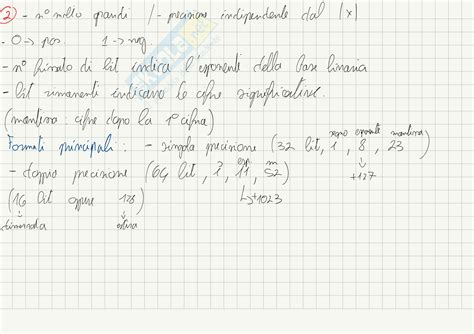 2) - n° molto grandi / - precisione indipendente dal |x|
- 0 → pos. 1 → neg
- n° fissato di bit indica l'esponente della base binaria
- bit rimanenti indicano le cifre significative.
(mantissa: cifre dopo la 1° cifra)
Formati principali: - singola precisione (32 bit, 1, 8, 23)
segno esponente mantissa
↓ +127
- doppia precisione (64 bit, 1, 11, 52)
esp. m
↳ +1023
(16 bit oppure 128)
↓ ↓
dimezzata estesa